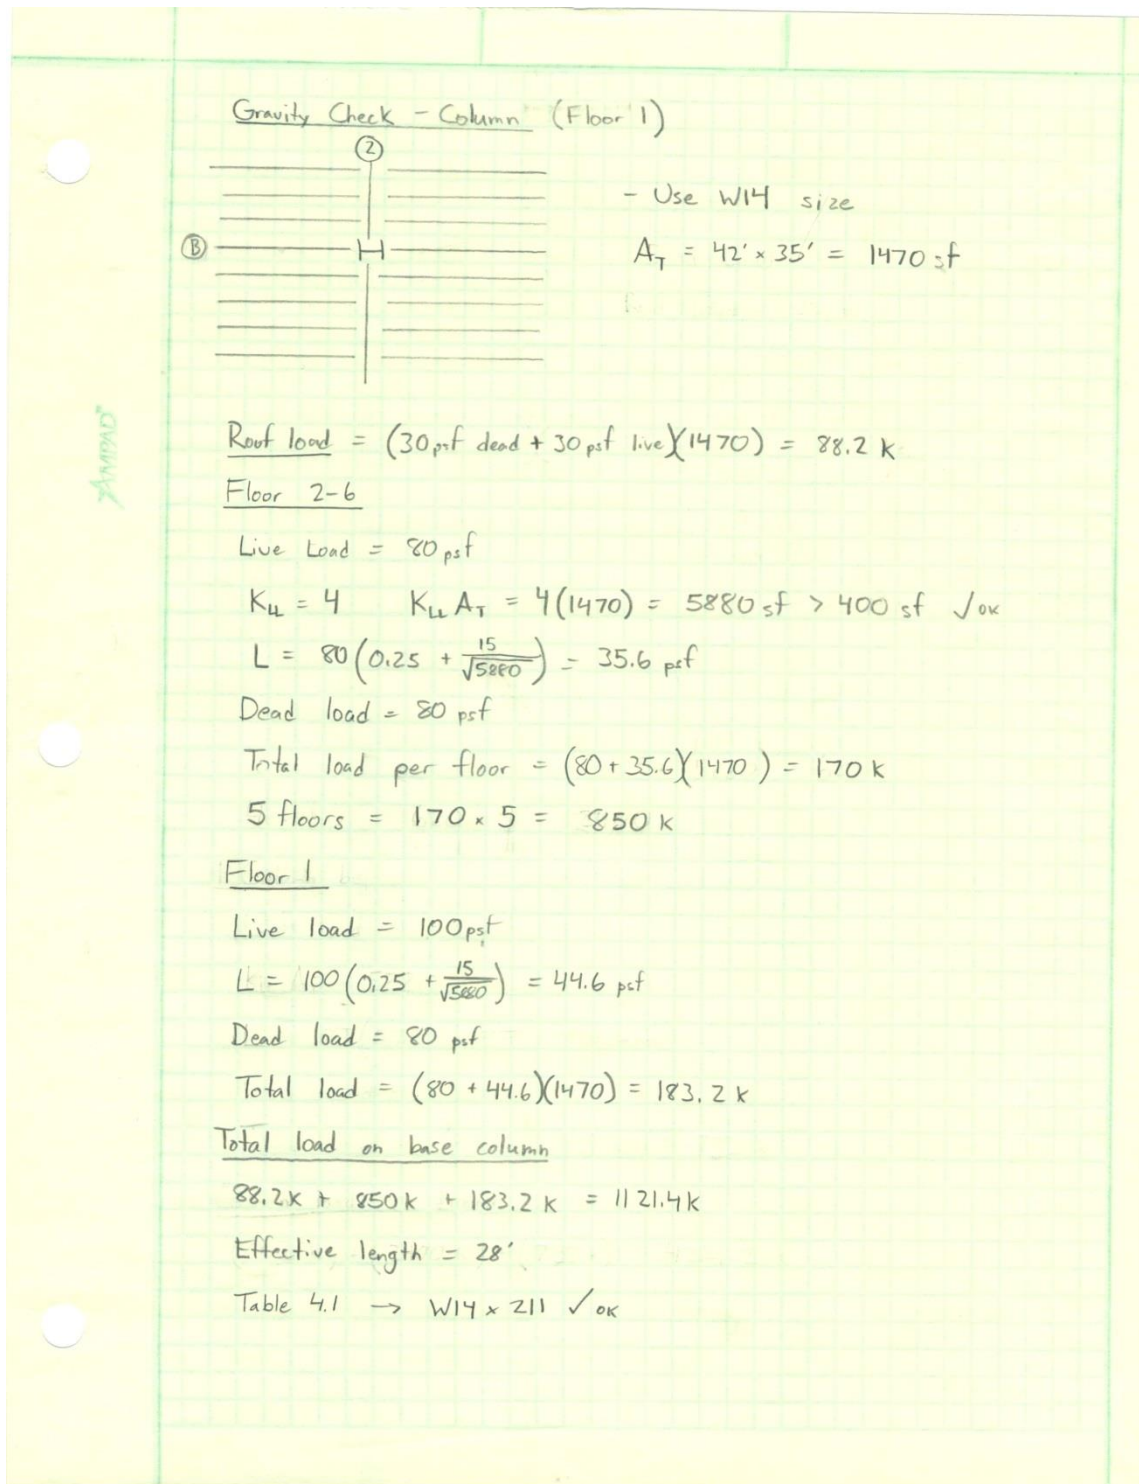 Gravity Check - Column (Floor 1)
2
- Use W14 size
B
A_T = 42' × 35' = 1470 sf
AMPAD
Roof load = (30 psf dead + 30 psf live)(1470) = 88.2 k
Floor 2-6
Live Load = 80 psf
K_LL = 4 K_LL A_T = 4(1470) = 5880 sf > 400 sf √ OK
L = 80(0.25 + 15/√5880) = 35.6 psf
Dead load = 80 psf
Total load per floor = (80 + 35.6)(1470) = 170 k
5 floors = 170 × 5 = 850 k
Floor 1
Live load = 100 psf
L = 100(0.25 + 15/√5880) = 44.6 psf
Dead load = 80 psf
Total load = (80 + 44.6)(1470) = 183.2 k
Total load on base column
88.2 k + 850 k + 183.2 k = 1121.4 k
Effective length = 28'
Table 4.1 → W14 × 211 ✓ OK